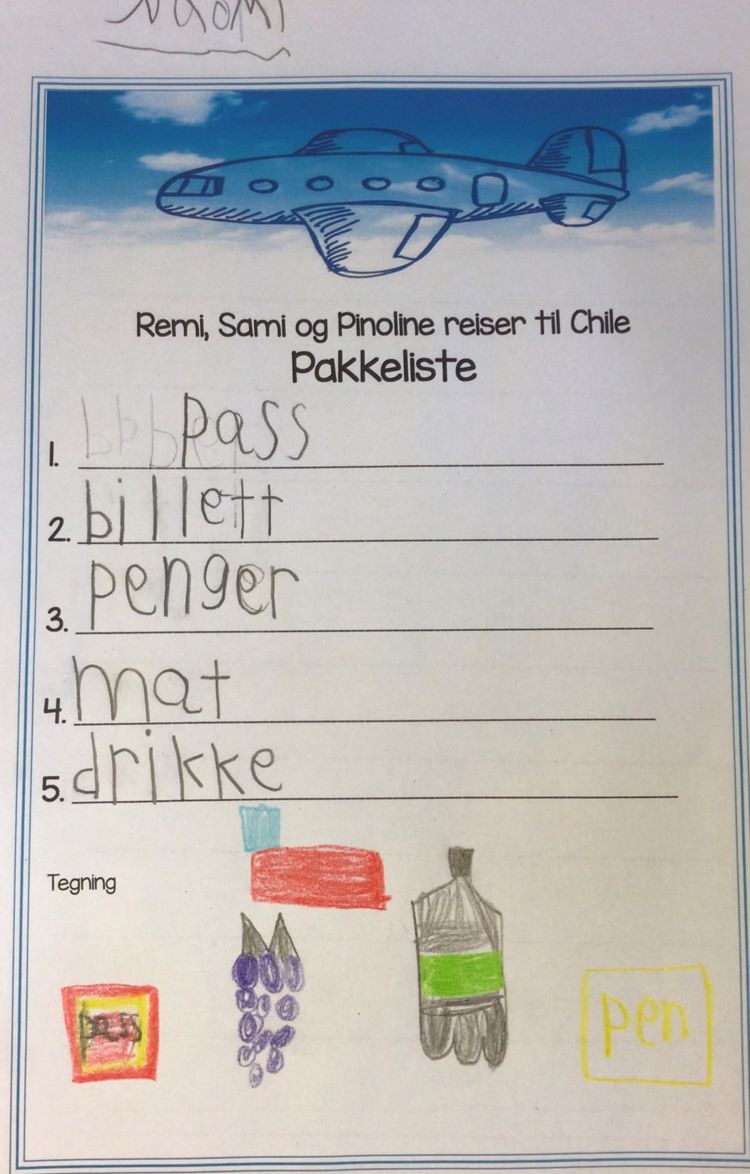 Naomi
Remi, Sami og Pinoline reiser til Chile
Pakkeliste
1. pass
2. billett
3. penger
4. mat
5. drikke
Tegning
pass
pen